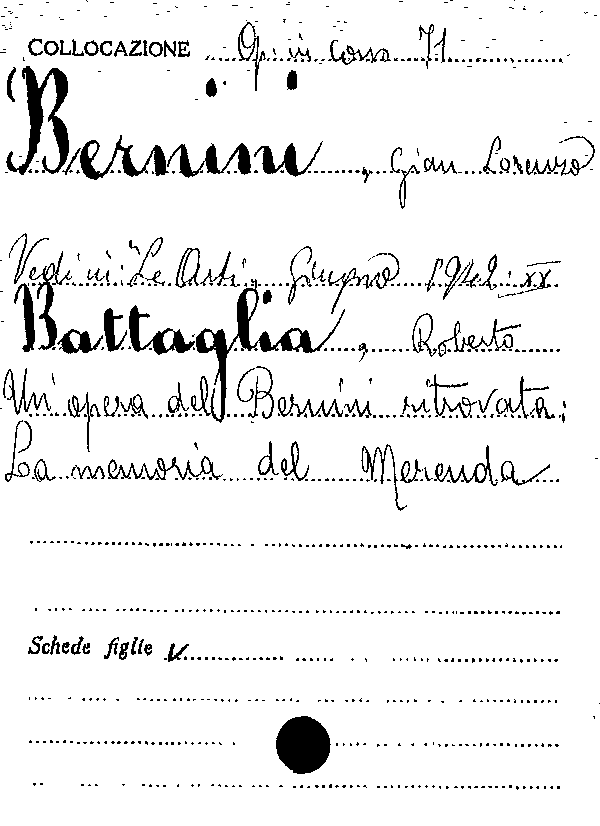 COLLOCAZIONE Op. in corso 71
Bernini, Gian Lorenzo
Vedi in: "Le Arti" Giugno 1942. XX
Battaglia, Roberto
Un'opera del Bernini ritrovata:
La memoria del Merenda
Schede figlie V